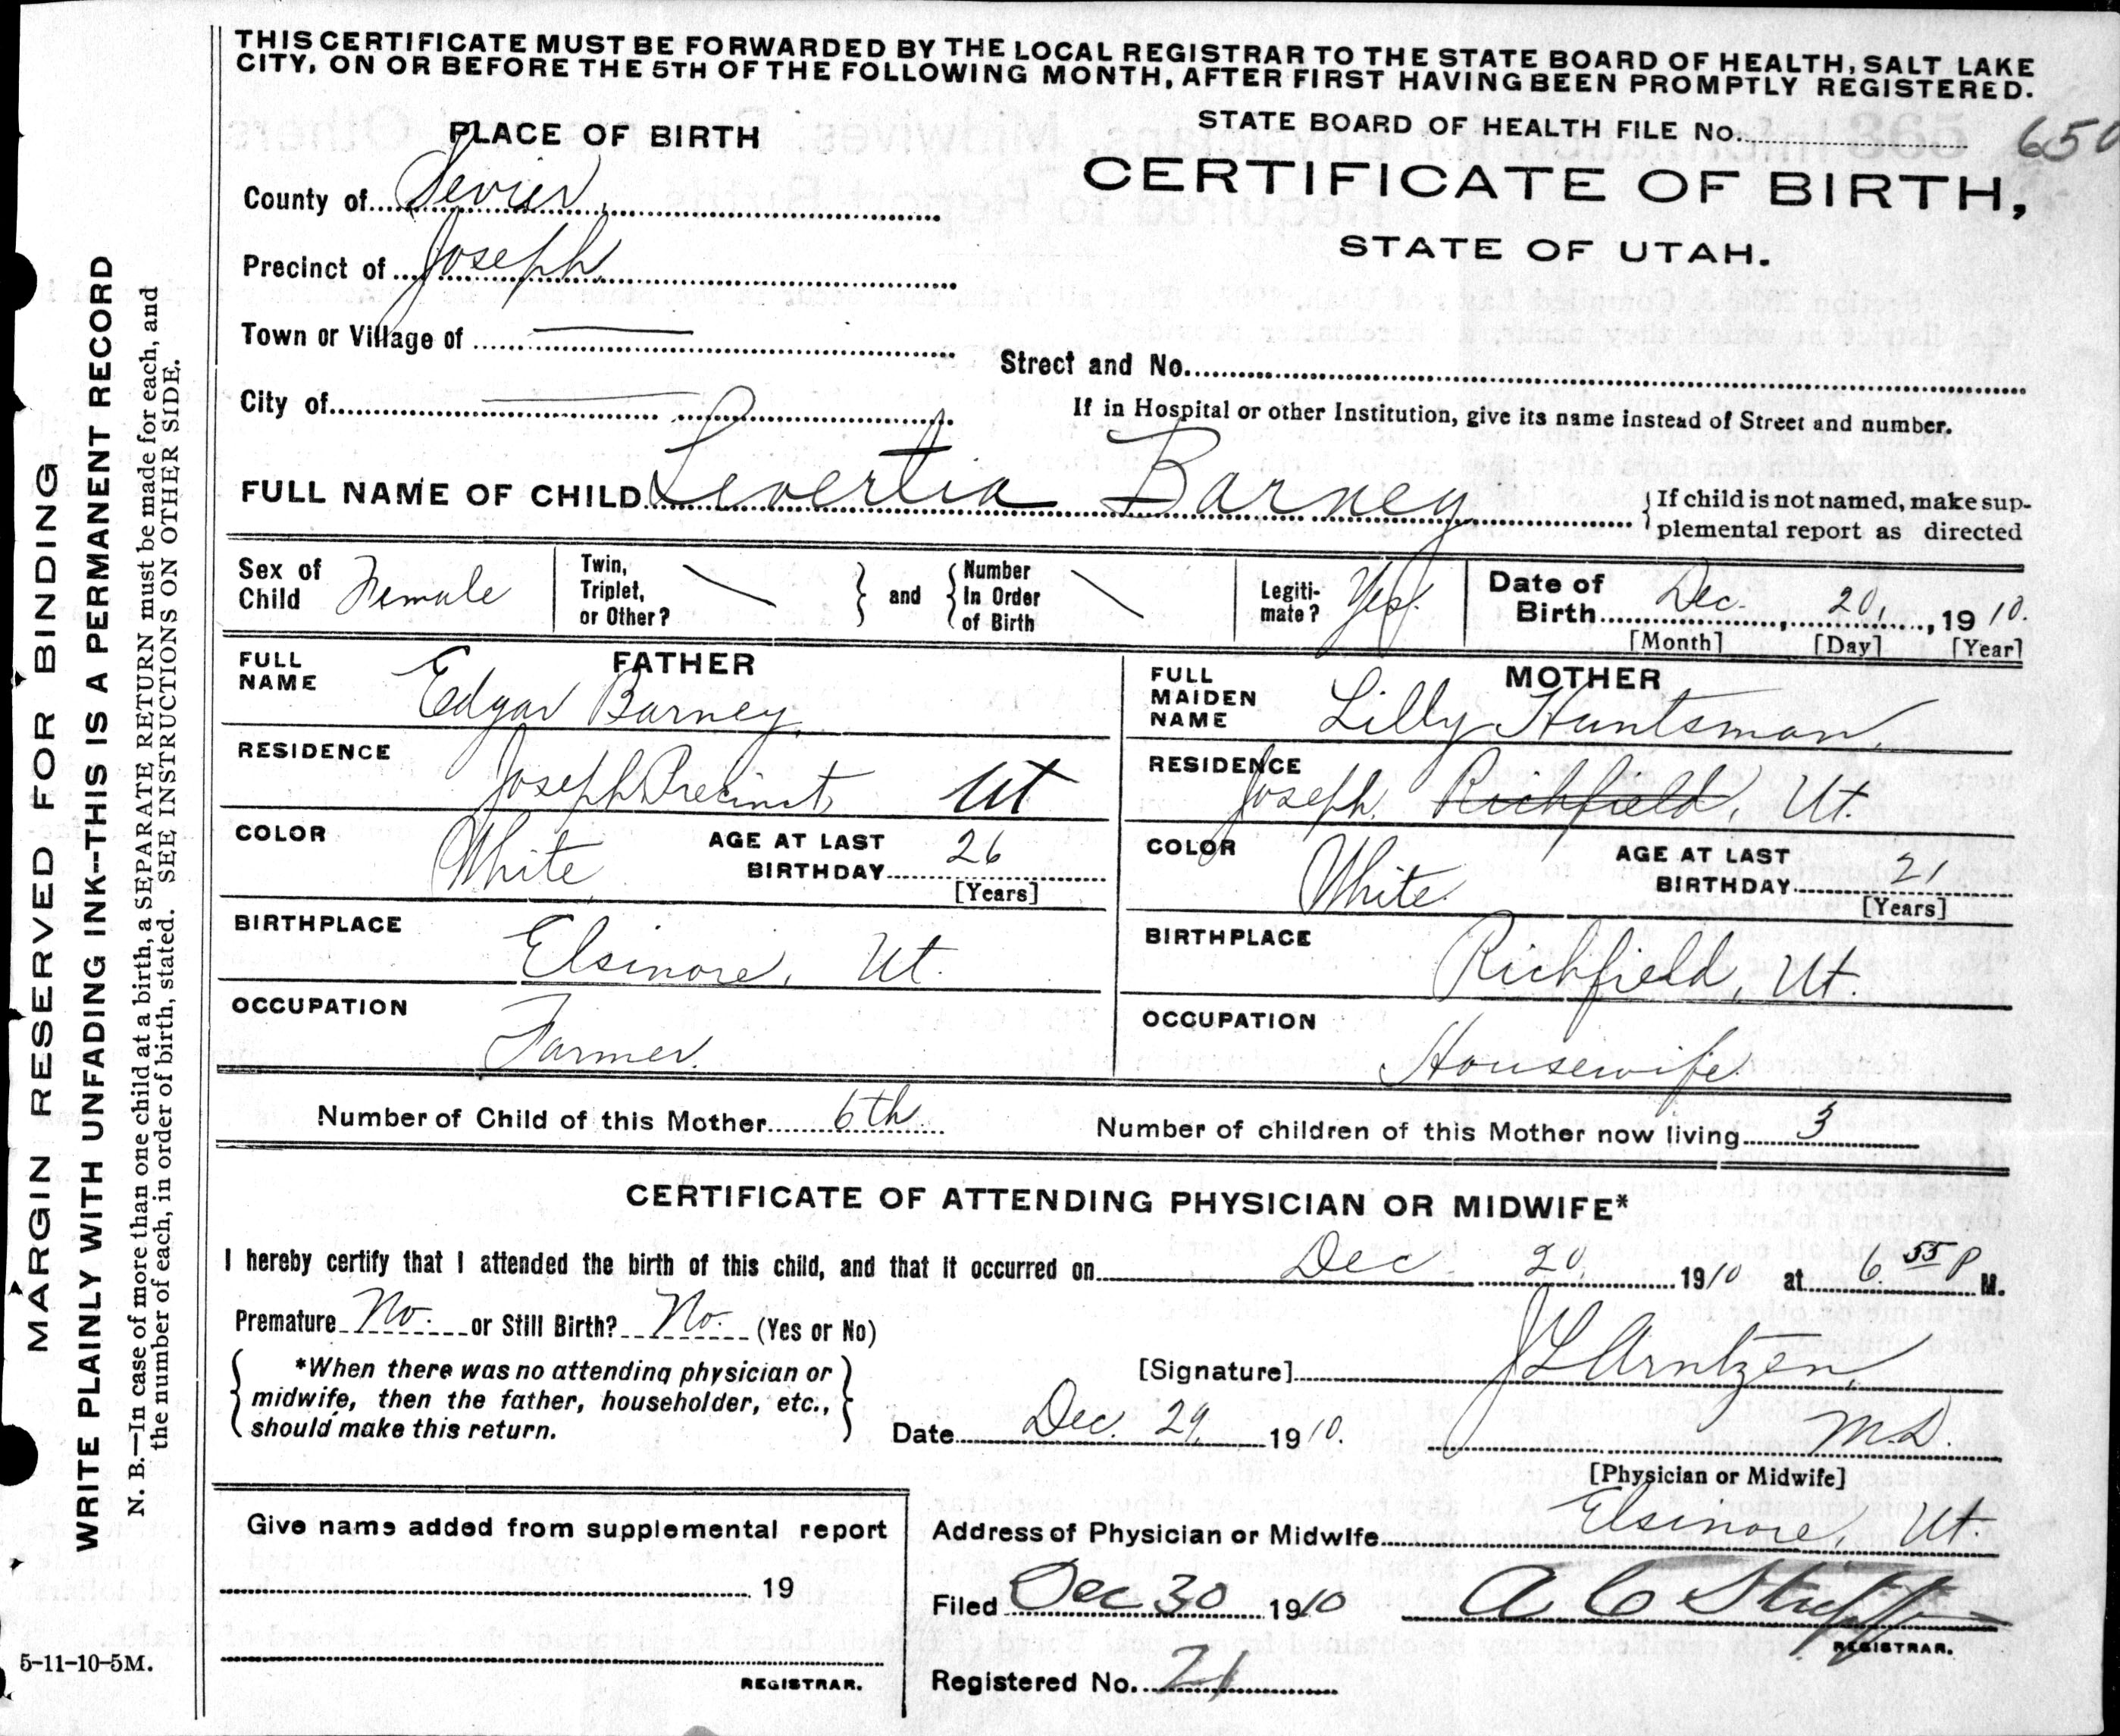 THIS CERTIFICATE MUST BE FORWARDED BY THE LOCAL REGISTRAR TO THE STATE BOARD OF HEALTH, SALT LAKE
CITY, ON OR BEFORE THE 5TH OF THE FOLLOWING MONTH, AFTER FIRST HAVING BEEN PROMPTLY REGISTERED.
PLACE OF BIRTH
STATE BOARD OF HEALTH FILE No. 650
County of Sevier,
CERTIFICATE OF BIRTH,
STATE OF UTAH.
Precinct of Joseph
Town or Village of
Street and No.
City of
If in Hospital or other Institution, give its name instead of Street and number.
FULL NAME OF CHILD Levertia Barney
If child is not named, make sup-
plemental report as directed
Sex of Child Female
Twin, Triplet, or Other?
and
Number In Order of Birth
Legiti-mate? Yes.
Date of Birth Dec. 20, 1910.
[Month] [Day] [Year]
FATHER
FULL NAME Edgar Barney,
RESIDENCE Joseph Precinct, Ut
COLOR White
AGE AT LAST BIRTHDAY 26
[Years]
BIRTHPLACE Elsinore, Ut.
OCCUPATION Farmer.
MOTHER
FULL MAIDEN NAME Lilly Huntsman,
RESIDENCE Joseph Richfield, Ut.
COLOR White
AGE AT LAST BIRTHDAY 21
[Years]
BIRTHPLACE Richfield, Ut.
OCCUPATION Housewife
Number of Child of this Mother 6th
Number of children of this Mother now living 3
CERTIFICATE OF ATTENDING PHYSICIAN OR MIDWIFE*
I hereby certify that I attended the birth of this child, and that it occurred on Dec. 20, 1910 at 6 55 P M.
Premature No. or Still Birth? No. (Yes or No)
*When there was no attending physician or
midwife, then the father, householder, etc.,
should make this return.
[Signature] J L Arntzen,
Date Dec. 29, 1910. M.D.
[Physician or Midwife]
Give name added from supplemental report
19
REGISTRAR.
Address of Physician or Midwife Elsinore, Ut.
Filed Dec 30 1910 A C
REGISTRAR.
Registered No. 21
5-11-10-5M.
MARGIN RESERVED FOR BINDING
WRITE PLAINLY WITH UNFADING INK--THIS IS A PERMANENT RECORD
N. B.—In case of more than one child at a birth, a SEPARATE RETURN must be made for each, and
the number of each, in order of birth, stated. SEE INSTRUCTIONS ON OTHER SIDE.